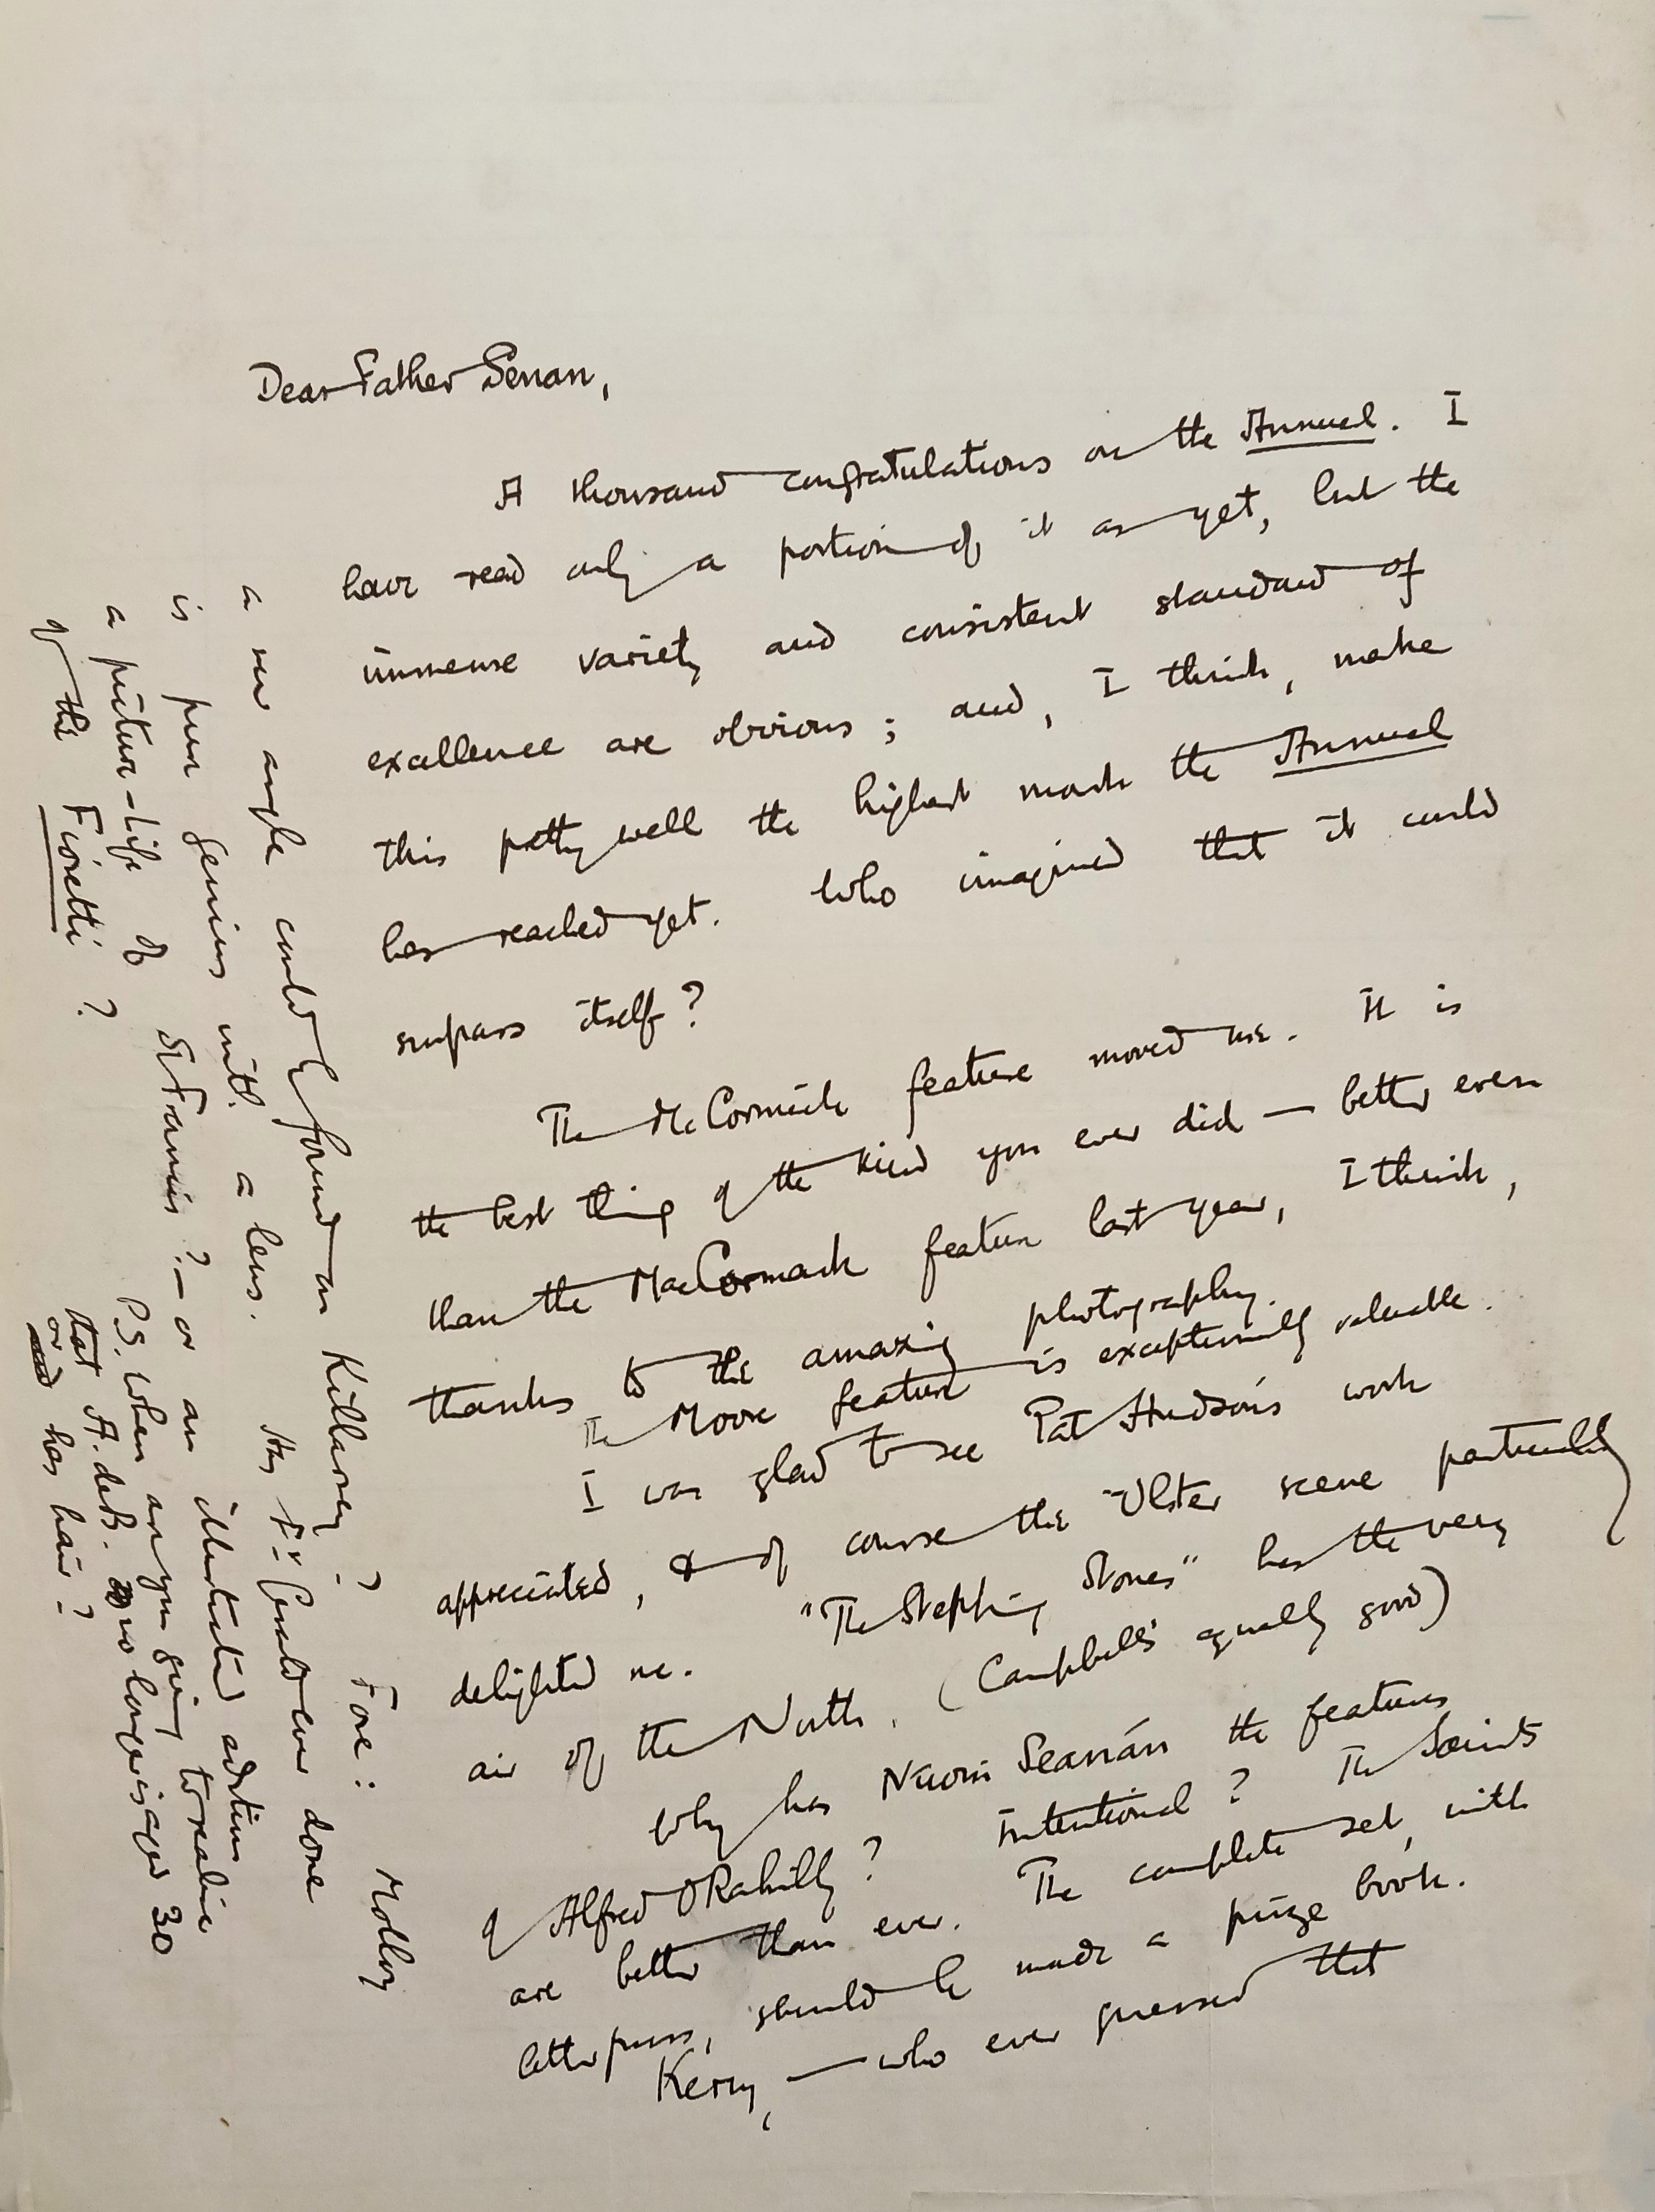 Dear Father Senan,
A thousand congratulations on the Annual. I
have read only a portion of it as yet, but the
immense variety and consistent standard of
excellence are obvious; and, I think, make
this pretty well the highest mark the Annual
has reached yet. Who imagined that it could
surpass itself?
The McCormick feature moved me. It is
the best thing of the kind you ever did — better even
than the MacCormack feature last year, I think,
thanks to the amazing photography.
The Moore feature is exceptionally valuable.
I was glad to see Pat Hudson's work
appreciated, & of course the Ulster scene particularly
delighted me. "The Stepping Stones" has the very
air of the North. (Campbell's equally good)
Why has Naomi Seanán the features
of Alfred O'Rahilly? Intentional? The Saints
are better than ever. The complete set, with
letterpress, should be made a prize book.
Kerry, — who ever guessed that
a new angle could be found on Killarney? Fore: Molloy
is pure genius with a lens. Has Fr Gerald ever done
a picture-life of St Francis? — or an illustrated edition
of the Fioretti?
P.S. When are you going to realise
that A. de B. no longer is aged 30
or has hair?